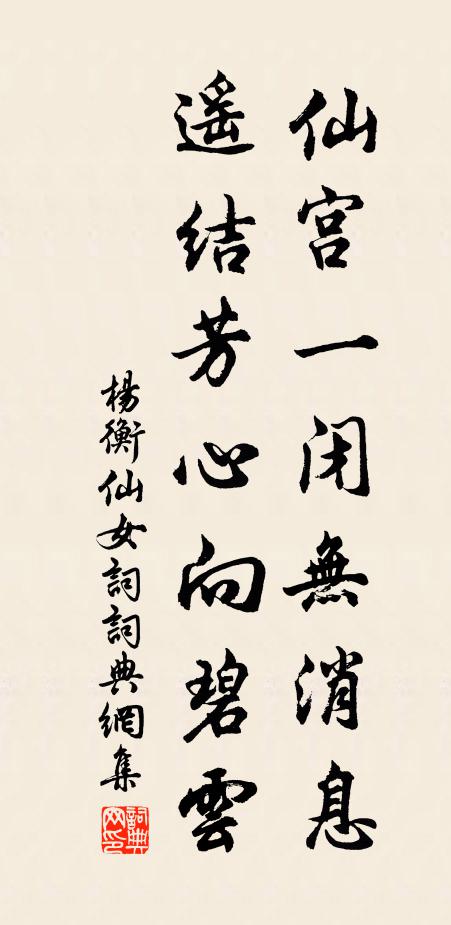 仙宫一闭無消息
遥结芳心向碧雲
楊衡仙女詞詞典網集
詞典
网印